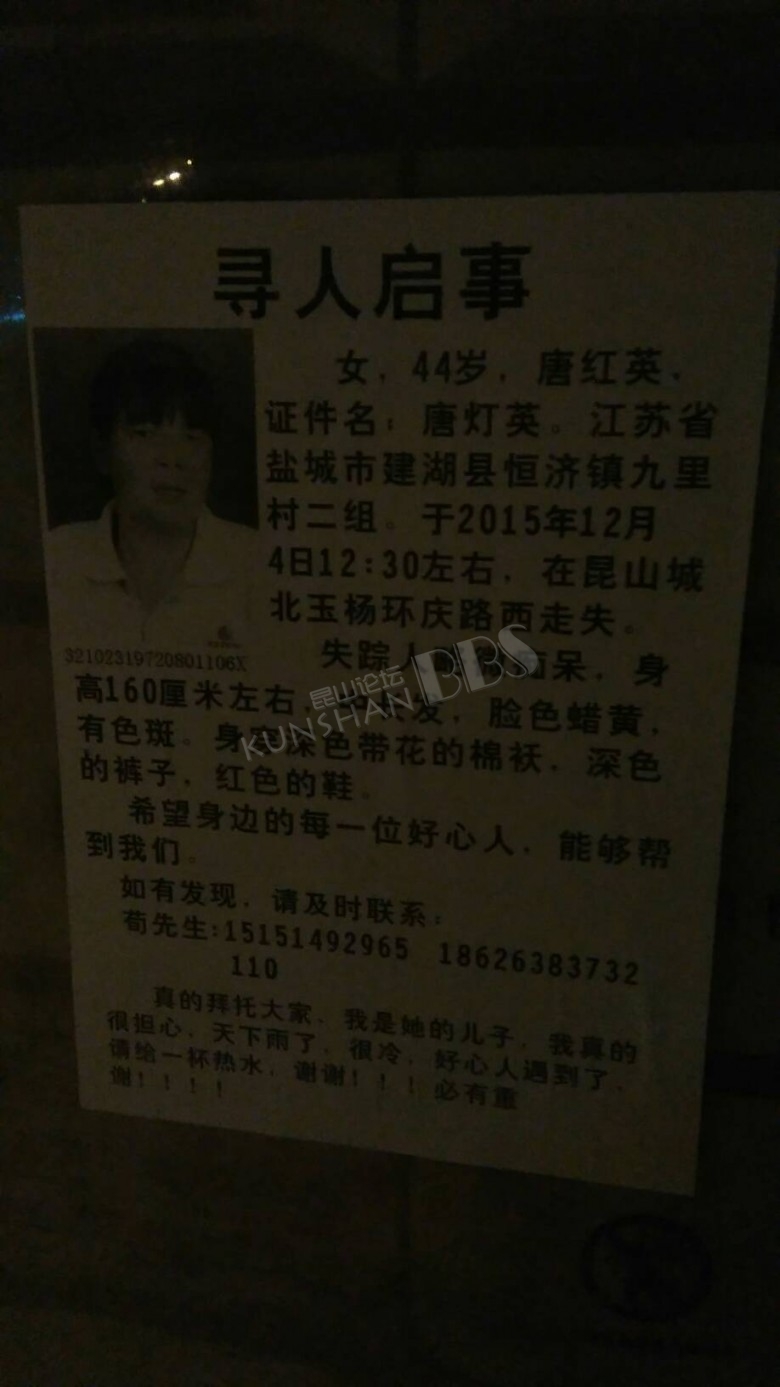 寻人启事
女，44岁，唐红英，
证件名：唐灯英。江苏省
盐城市建湖县恒济镇九里
村二组。于2015年12月
4日12:30左右，在昆山城
北玉杨环庆路西走失。
32102319720801106X
失踪人 痴呆，身
高160厘米左右， 发，脸色蜡黄，
有色斑。身穿深色带花的棉袄，深色
的裤子，红色的鞋。
希望身边的每一位好心人，能够帮
到我们。
如有发现，请及时联系：
荀先生:15151492965 18626383732
110
真的拜托大家，我是她的儿子，我真的
很担心，天下雨了，很冷，好心人遇到了，
请给一杯热水，谢谢！！！必有重
谢！！！！
昆山论坛
KUNSHAN BBS